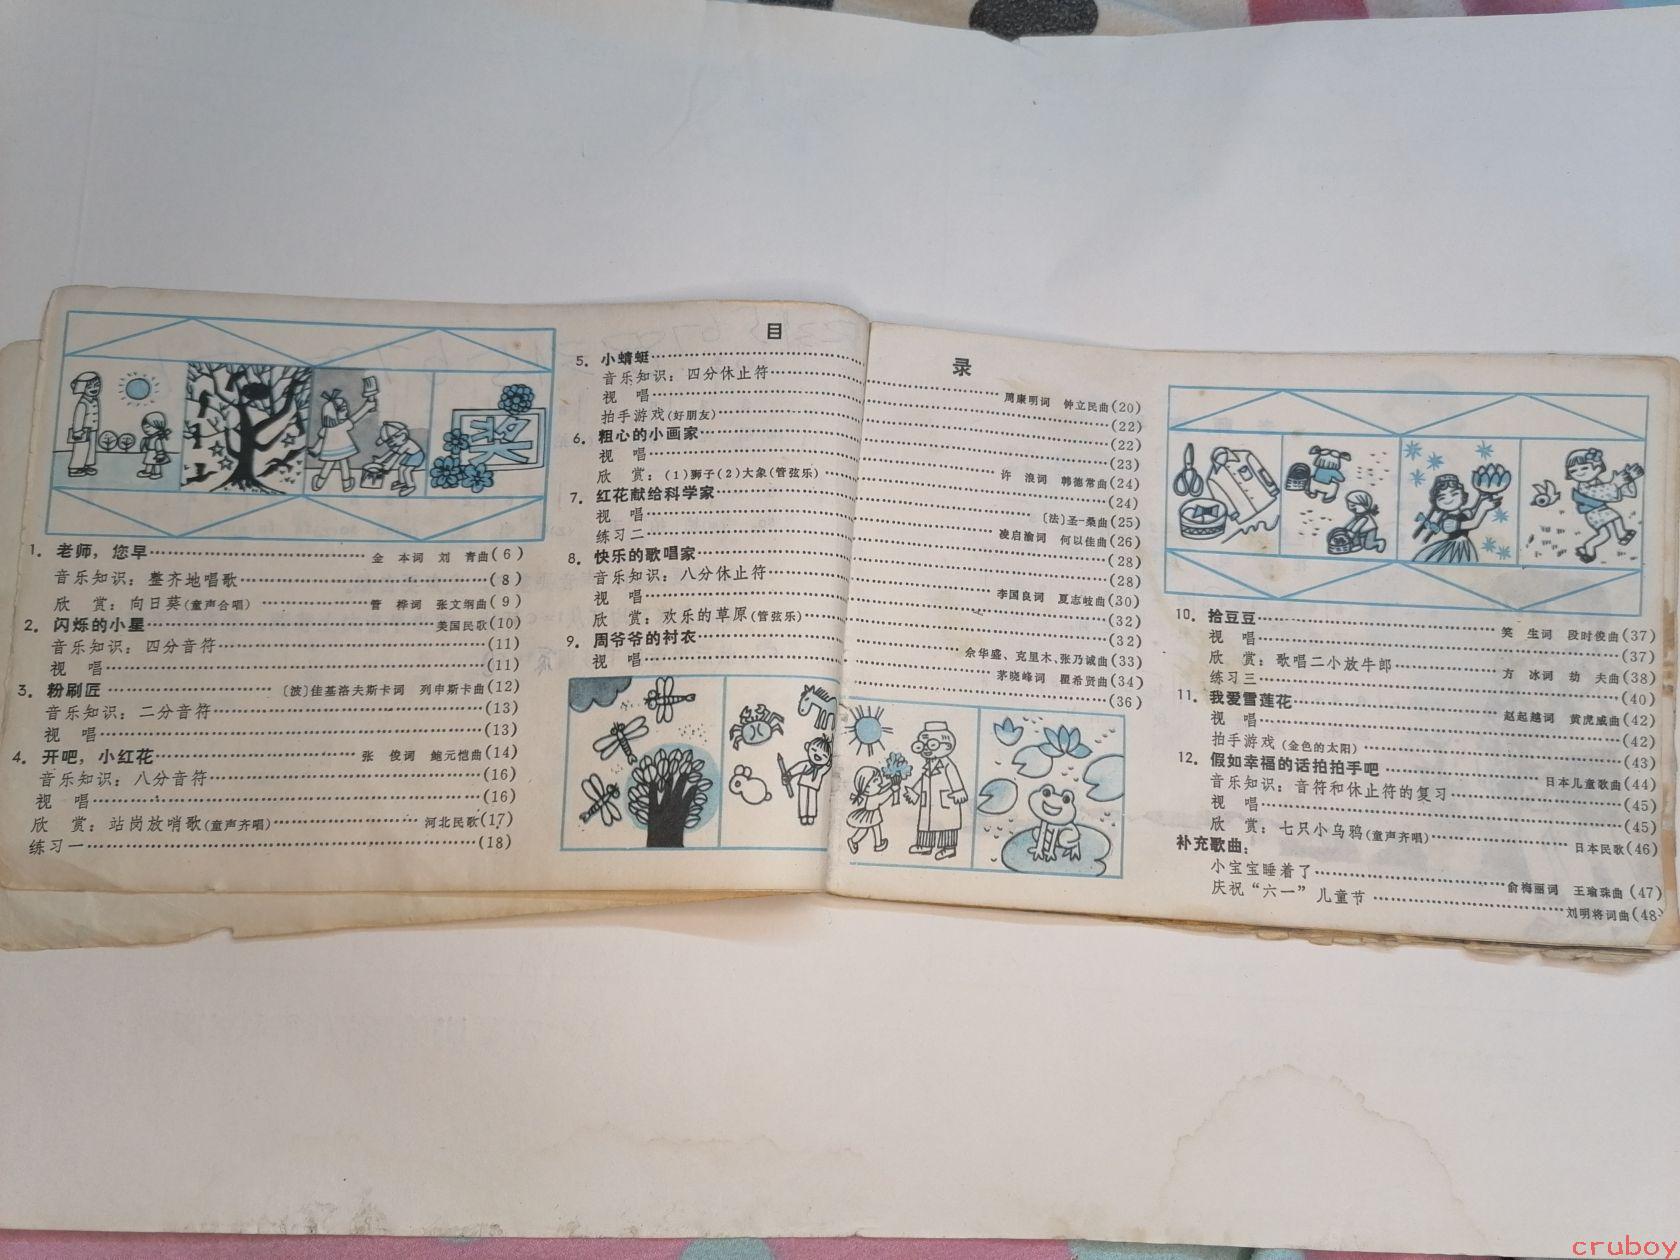 目 录
奖
1. 老师，您早……金 本词 刘 青曲(6)
音乐知识：整齐地唱歌……(8)
欣 赏：向日葵(童声合唱)……管 桦词 张文纲曲(9)
2. 闪烁的小星……美国民歌(10)
音乐知识：四分音符……(11)
视 唱……(11)
3. 粉刷匠……〔波〕佳基洛夫斯卡词 列申斯卡曲(12)
音乐知识：二分音符……(13)
视 唱……(13)
4. 开吧，小红花……张 俊词 鲍元恺曲(14)
音乐知识：八分音符……(16)
视 唱……(16)
欣 赏：站岗放哨歌(童声齐唱)……河北民歌(17)
练习一……(18)
5. 小蜻蜓……周康明词 钟立民曲(20)
音乐知识：四分休止符……(22)
视 唱……(22)
拍手游戏(好朋友)……(23)
6. 粗心的小画家……许 浪词 韩德常曲(24)
视 唱……(24)
欣 赏：(1)狮子(2)大象(管弦乐)……〔法〕圣-桑曲(25)
7. 红花献给科学家……凌启渝词 何以佳曲(26)
视 唱……(28)
练习二……(28)
8. 快乐的歌唱家……李国良词 夏志岐曲(30)
音乐知识：八分休止符……(32)
视 唱……(32)
欣 赏：欢乐的草原(管弦乐)……佘华盛、克里木、张乃诚曲(33)
9. 周爷爷的衬衣……茅晓峰词 瞿希贤曲(34)
视 唱……(36)
10. 拾豆豆……笑 生词 段时俊曲(37)
视 唱……(37)
欣 赏：歌唱二小放牛郎……方 冰词 劫 夫曲(38)
练习三……(40)
11. 我爱雪莲花……赵起越词 黄虎威曲(42)
视 唱……(42)
拍手游戏(金色的太阳)……(43)
12. 假如幸福的话拍拍手吧……日本儿童歌曲(44)
音乐知识：音符和休止符的复习……(45)
视 唱……(45)
欣 赏：七只小乌鸦(童声齐唱)……日本民歌(46)
补充歌曲：
小宝宝睡着了……俞梅丽词 王瑜珠曲(47)
庆祝“六一”儿童节……刘明将词曲(48)
cruboy